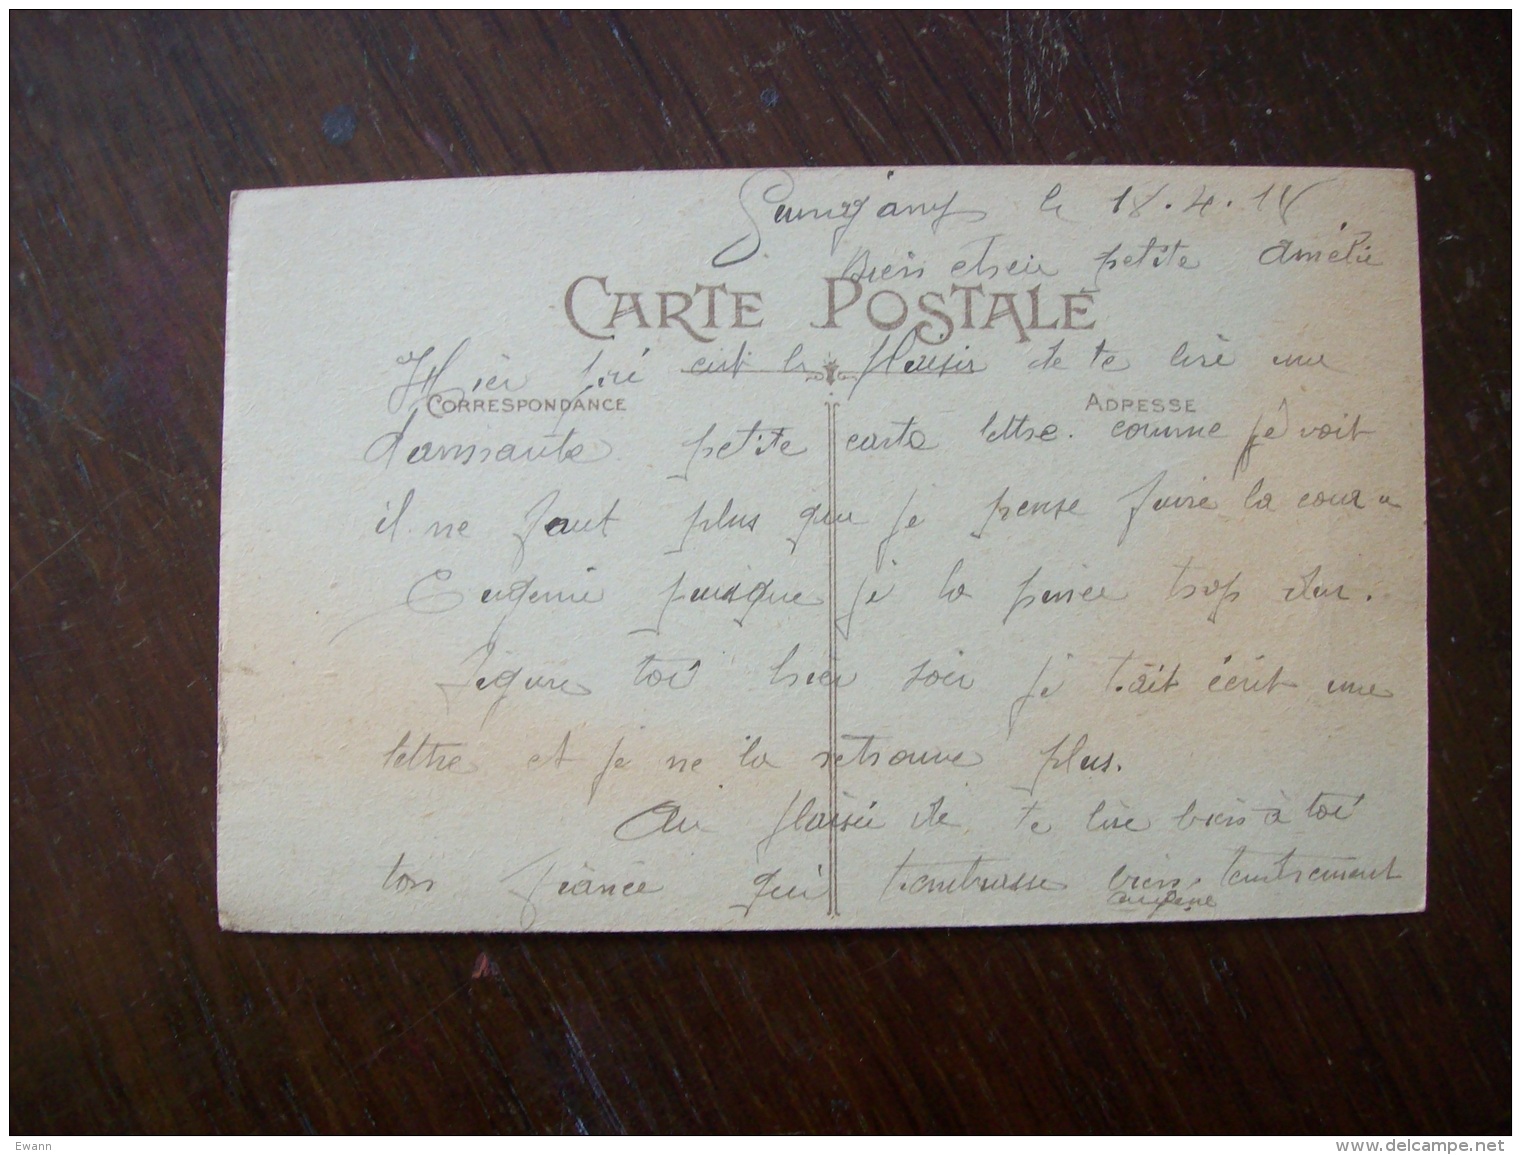 le 18.4.18
bien petite Amélie
CARTE POSTALE
Hier le plaisir de te lire une
CORRESPONDANCE ADRESSE
petite carte lettre. comme je voit
il ne faut plus que je pense faire la cour a
Eugenie puisque je la trop dur.
Figure toi hier soir je t'ait écrit une
lettre et je ne la retrouve plus.
Au plaisir de te lire bien à toi
ton fiancé qui t'embrasse bien tendrement
Ewann
www.delcampe.net